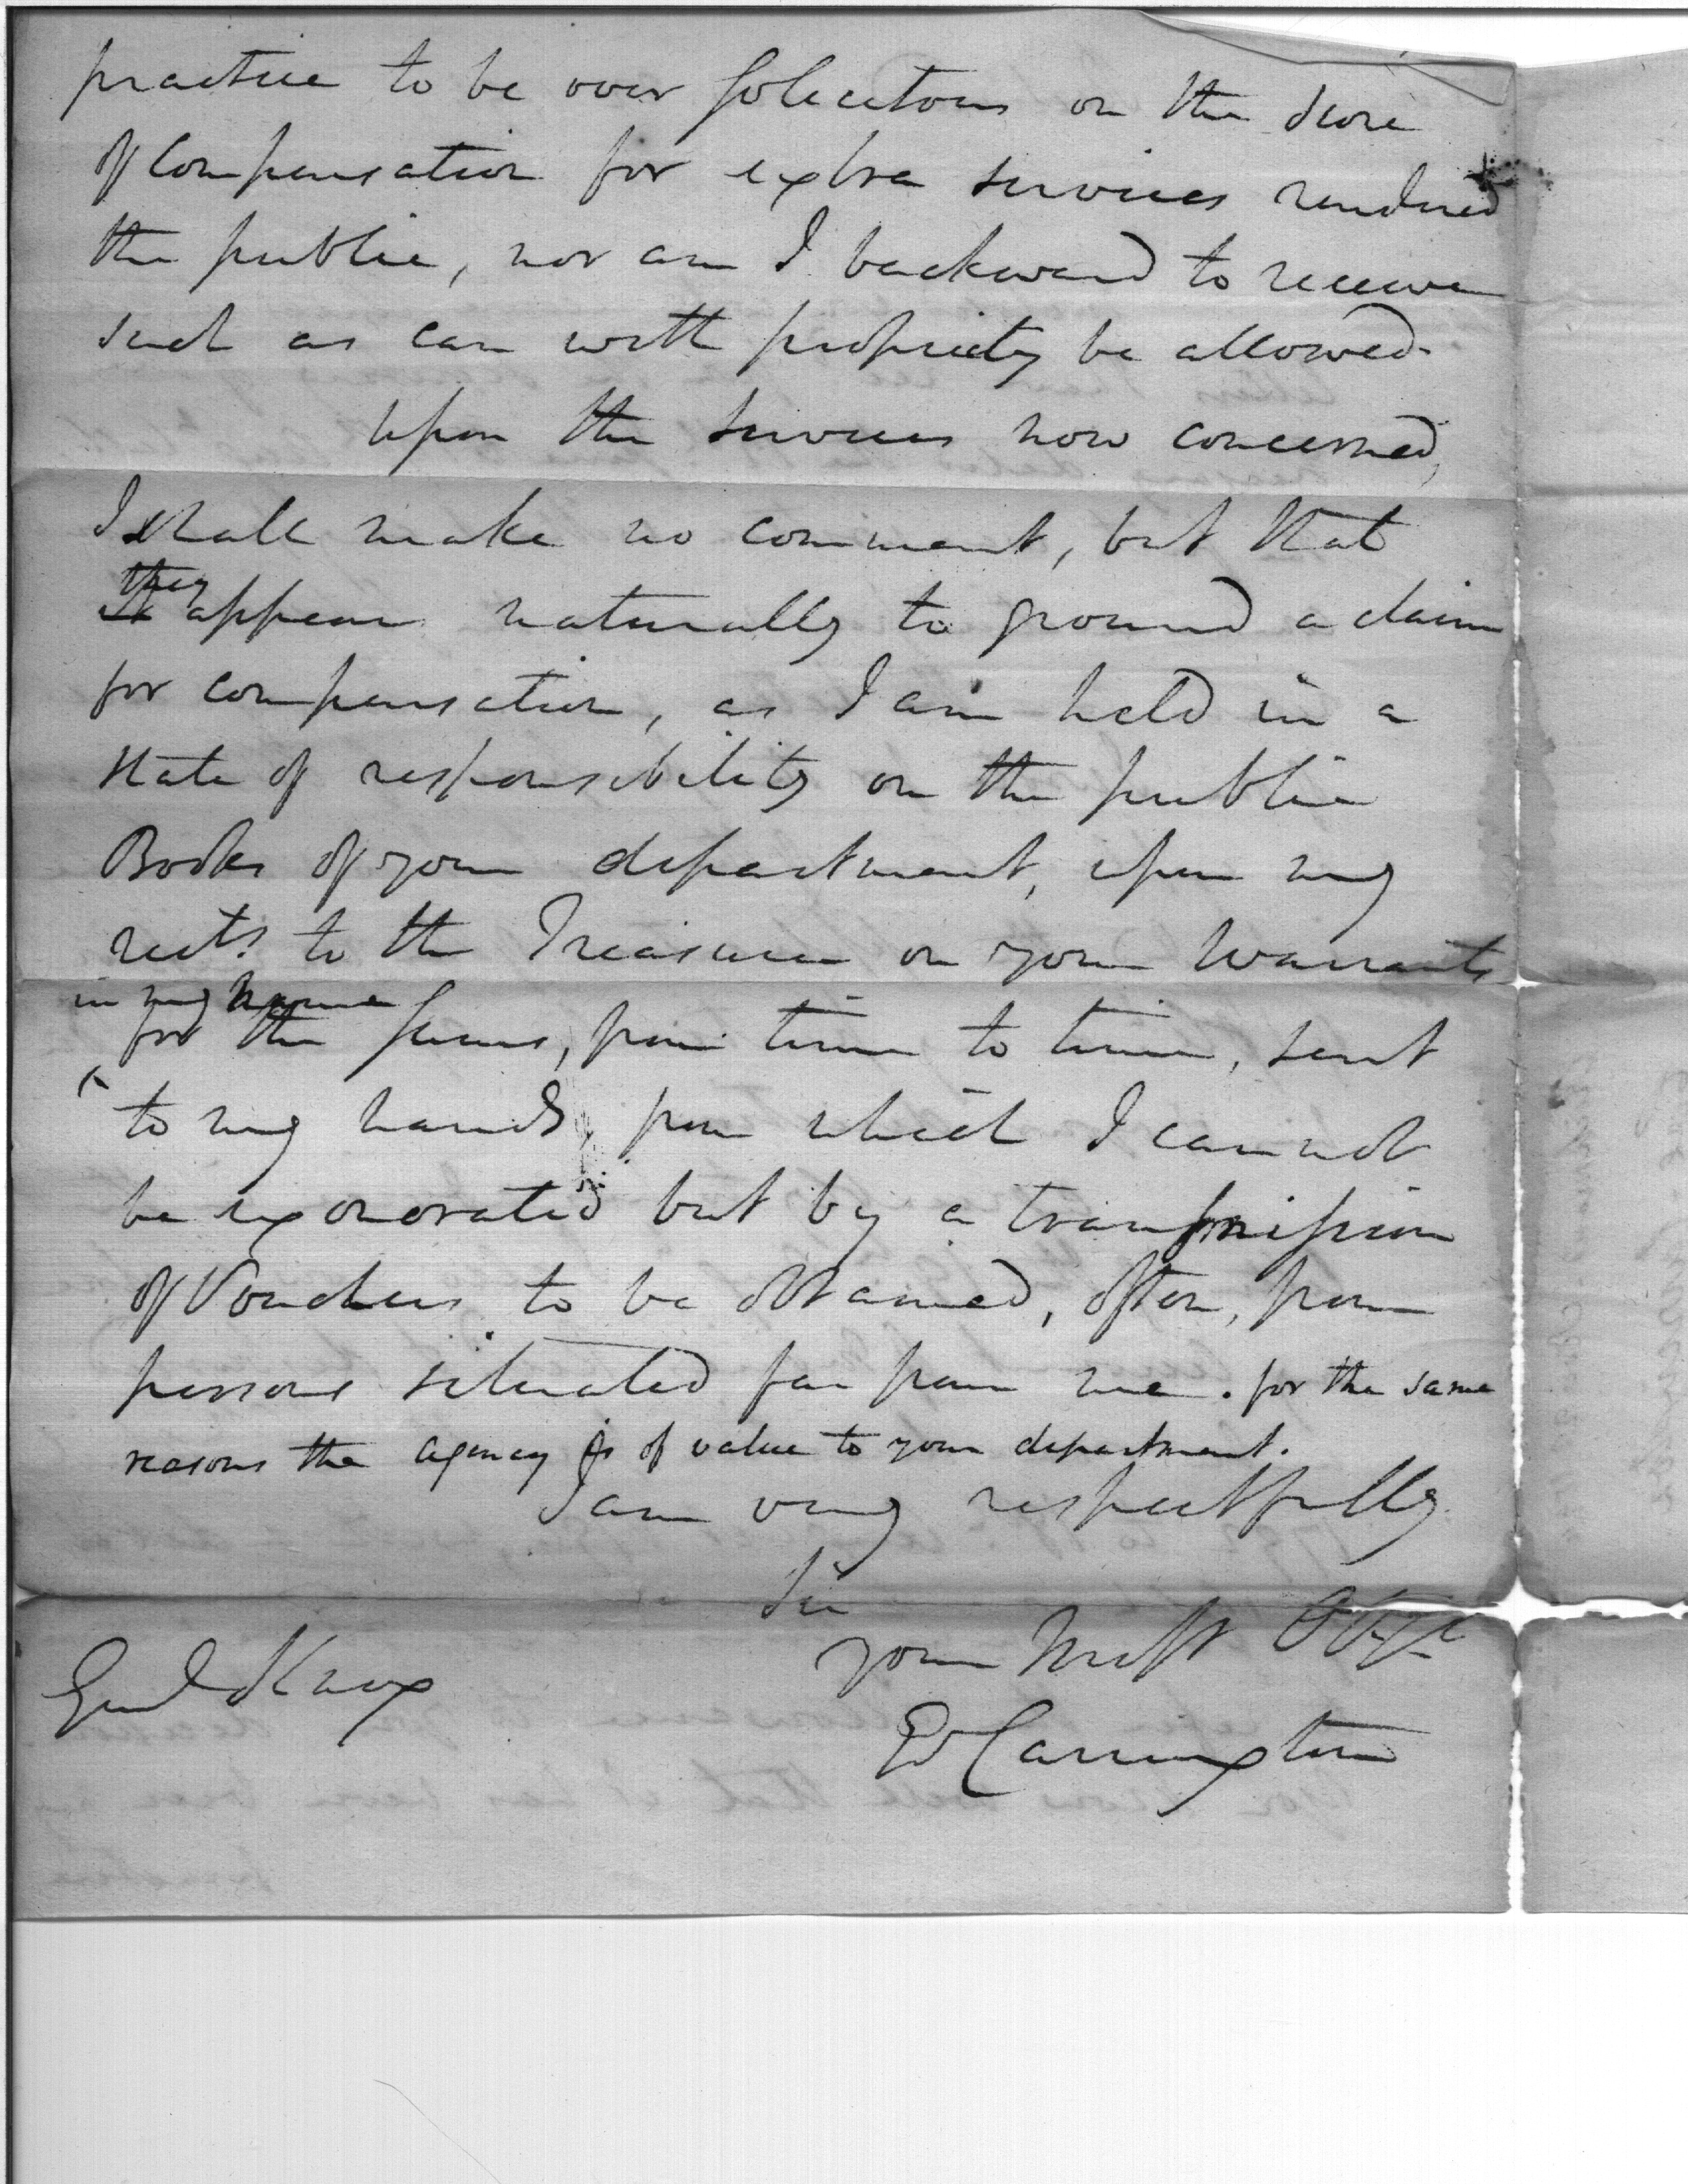 practice to be over solicitous on the score
of Compensation for extra services rendered
the public, nor am I backward to receive
such as can with propriety be allowed.
upon the services now concerned,
I shall make no comment, but that
they
It appear naturally to ground a claim
for compensation, as I am held in a
state of responsibility on the public
Books of your department, upon my
rects. to the Treasurer on your Warrants
in my name
for the sums, from time to time, sent
^ to my hands, from which I cannot
be exonorated but by a transmission
of Vouchers to be obtained, often, from
persons situated far from me. for the same
reasons the agency is of value to your department.
I am very respectfully
Sir
your Most Obt
Genl Knox
Ed Carrington